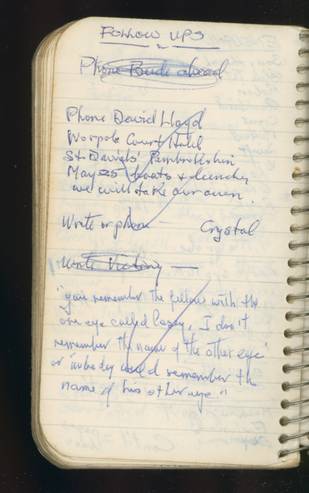 FOLLOW UPS
Phone ahead
Phone David Lloyd
Warpole Court Hotel
St Davids' Pembrokeshire
May 25 boats & lunches
we will take our own.
Write or phone — Crystal
Write
"you remember the fellow with the
one eye called Casey, I don't
remember the name of the other eye"
or "nobody could remember the
name of his other eye"